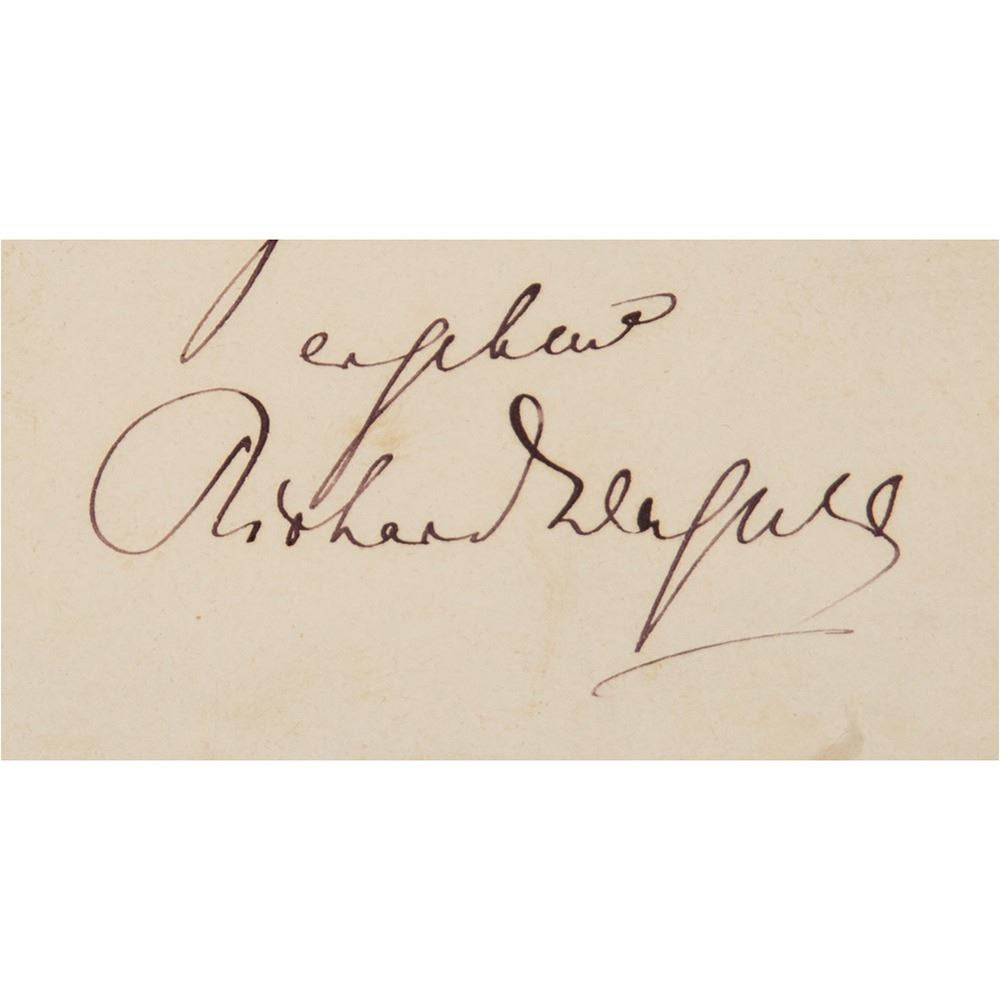 ergebener
Richard Wagner